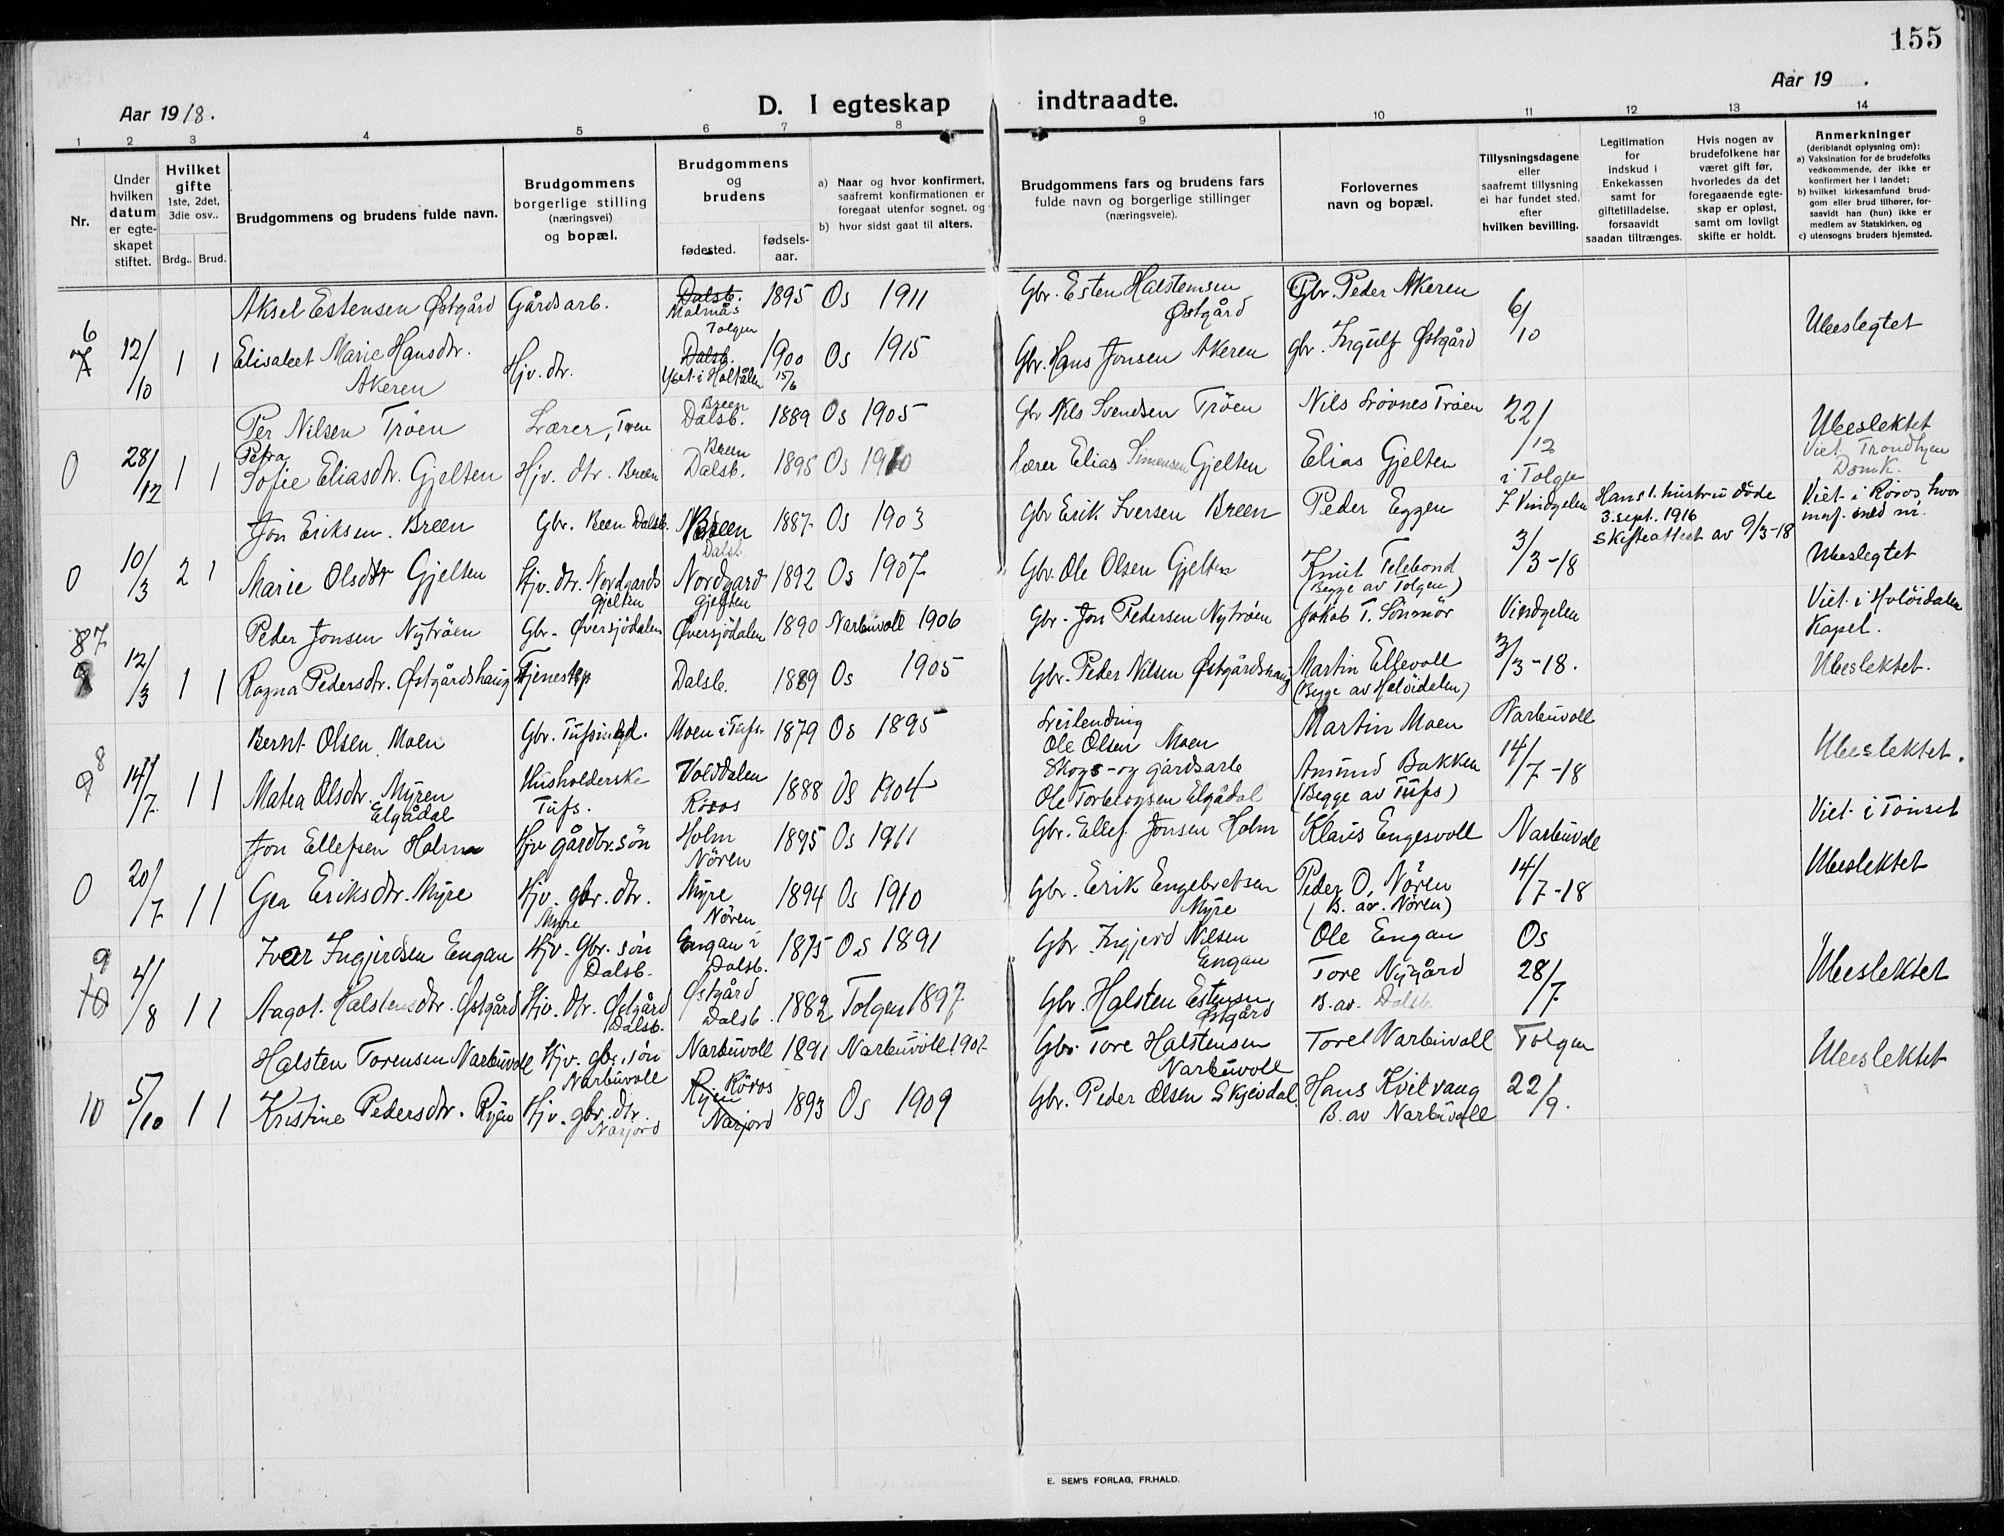 155
Aar 1918.
D. I egteskap indtraadte.
Aar 19 .
1 2 3 4 5 6 7 8 9 10 11 12 13 14
Nr.
Under hvilken datum er egteskapet stiftet.
Hvilket gifte
1ste, 2det, 3die osv..
Brdg.. Brud.
Brudgommens og brudens fulde navn.
Brudgommens borgerlige stilling (næringsvei) og bopæl.
Brudgommens og brudens
fødested.
fødselsaar.
a) Naar og hvor konfirmert, saafremt konfirmationen er foregaat utenfor sognet, og
b) hvor sidst gaat til alters.
Brudgommens fars og brudens fars fulde navn og borgerlige stillinger (næringsveie).
Forlovernes navn og bopæl.
Tillysningsdagene eller saafremt tillysning ei har fundet sted. efter hvilken bevilling.
Legitimation for indskud i Enkekassen samt for giftetilladelse, forsaavidt saadan tiltrænges.
Hvis nogen av brudefolkene har været gift før, hvorledes da det foregaaende egteskap er opløst, samt om lovligt skifte er holdt.
Anmerkninger
(deriblandt oplysning om):
a) Vaksination for de brudefolks vedkommende, der ikke er konfirmert her i landet;
b) hvilket kirkesamfund brudgom eller brud tilhører, forsaavidt han (hun) ikke er medlem av Statskirken, og
c) utensogns bruders hjemsted.
Aksel Estensen Østgård Gårdsarb. Dalsb. Malmås Tolgen 1895 Os 1911 Gbr. Esten Halstensen Østgård Gbr. Peder Akeren 6/10 Ubeslegtet
6 7 12/10 1 1 Elisabet Marie Hansdtr. Akeren Hjv. dtr. Dalsb. Yset i Holtålen 1900 15/6 Os 1915 Gbr. Hans Jonsen Akeren gbr. Ingulf Østgård
Per Nilsen Trøen Lærer, Tøen Breen Dalsb. 1889 Os 1905 Gbr Nils Svendsen Trøen Nils Trøen 22/12 Ubeslektet
0 28/12 1 1 Petra Sofie Eliasdtr. Gjelten Hjv. dtr. Breen Breen Dalsb. 1895 Os 1910 lærer Elias Simensen Gjelten Elias Gjelten i Tolgen Viet Trondhjem Domk.
Jon Eriksen Breen Gbr. Breen Dalsb. Breen Dalsb. 1887 Os 1903 Gbr Erik Iversen Breen Peder Eggen I Vindgelen Hans 1. hustru døde 3. sept. 1916 Skifteattest av 9/3-18 Viet i Røros, hvor
0 10/3 2 1 Marie Olsdtr Gjelten Hjv. dtr. Nordgards Gjelten Nordgard Gjelten 1892 Os 1907 Gbr. Ole Olsen Gjelten Knut Telebond (Begge av Tolgen) 3/3-18 Ubeslegtet
Peder Jonsen Nytrøen Gbr. Øversjødalen Øversjødalen 1890 Narbuvoll 1906 Gbr. Jon Pedersen Nytrøen Jakob T. Sønmør Vindgelen Viet i Holøidalen Kapel.
87 12/3 1 1 Ragna Pedersdtr. Østgårdshaug Tjenestep Dalsb. 1889 Os 1905 Gbr. Peder Nilsen Østgårdshaug Martin Ellevoll (Begge av Holøidalen) 3/3-18. Ubeslektet.
Bernt Olsen Moen Gbr. Tufsingd. Moen i Tufs. 1879 Os 1895 Leilending Ole Olsen Moen Martin Moen Narbuvoll Ubeslektet.
9 8 14/7 1 1 Matea Olsdtr. Myren Elgådal Husholderske Tufs. Volddalen Røros 1888 Os 1904 Skogs- og gårdsarb Ole Torbergsen Elgådal Amund Bakken (Begge av Tufs) 14/7-18
Jon Ellefsen Holm Hjv gårdbr. søn Holm Nøren 1895 Os 1911 Gbr. Ellef Jonsen Holm Klaus Engesvoll Narbuvoll Viet i Tønset
0 20/7 1 1 Gea Eriksdtr. Myre Hjv. gbr. dtr. Myre Myre Nøren 1894 Os 1910 Gbr. Erik Engebretsen Myre Peder O. Nøren (B. av. Nøren) 14/7-18 Ubeslektet
Ivar Ingjerdsen Engan Hjv. Gbr. søn Dalsb. Engan i Dalsb. 1875 Os 1891 Gbr. Ingjerd Nilsen Engan Ole Engan Os
9 10 4/8 1 1 Aagot Halstensdtr. Østgård Hjv. dtr. Østgård Dalsb. Østgård Dalsb. 1882 Tolgen 1897 Gbr. Halsten Estensen Østgård Tore Nygård B. av. Dalsb 28/7 Ubeslektet
Halsten Torensen Narbuvoll Hjv. gbr. søn Narbuvoll Narbuvoll 1891 Narbuvoll 1907 Gbr. Tore Halstensen Narbuvoll Tore Narbuvoll Tolgen Ubeslektet
10 5/10 1 1 Kristine Pedersdtr. Ryen Hjv. gbr. dtr. Narjord Ryen Røros Narjord 1893 Os 1909 Gbr. Peder Olsen Skjevdal. Hans Kvilvang B. av Narbuvoll 22/9.
E. SEM'S FORLAG, FR.HALD.